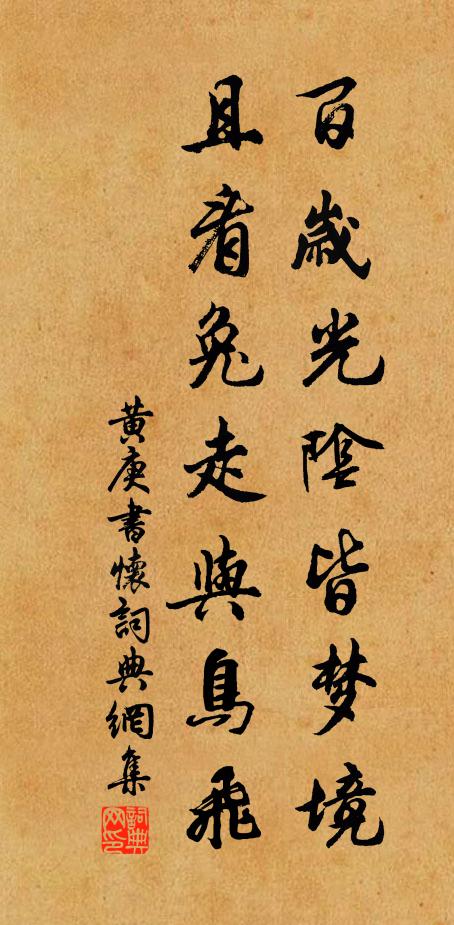 百歲光陰皆梦境
且看兔走與鳥飛
黄庚書懷詞典網集
詞典网印